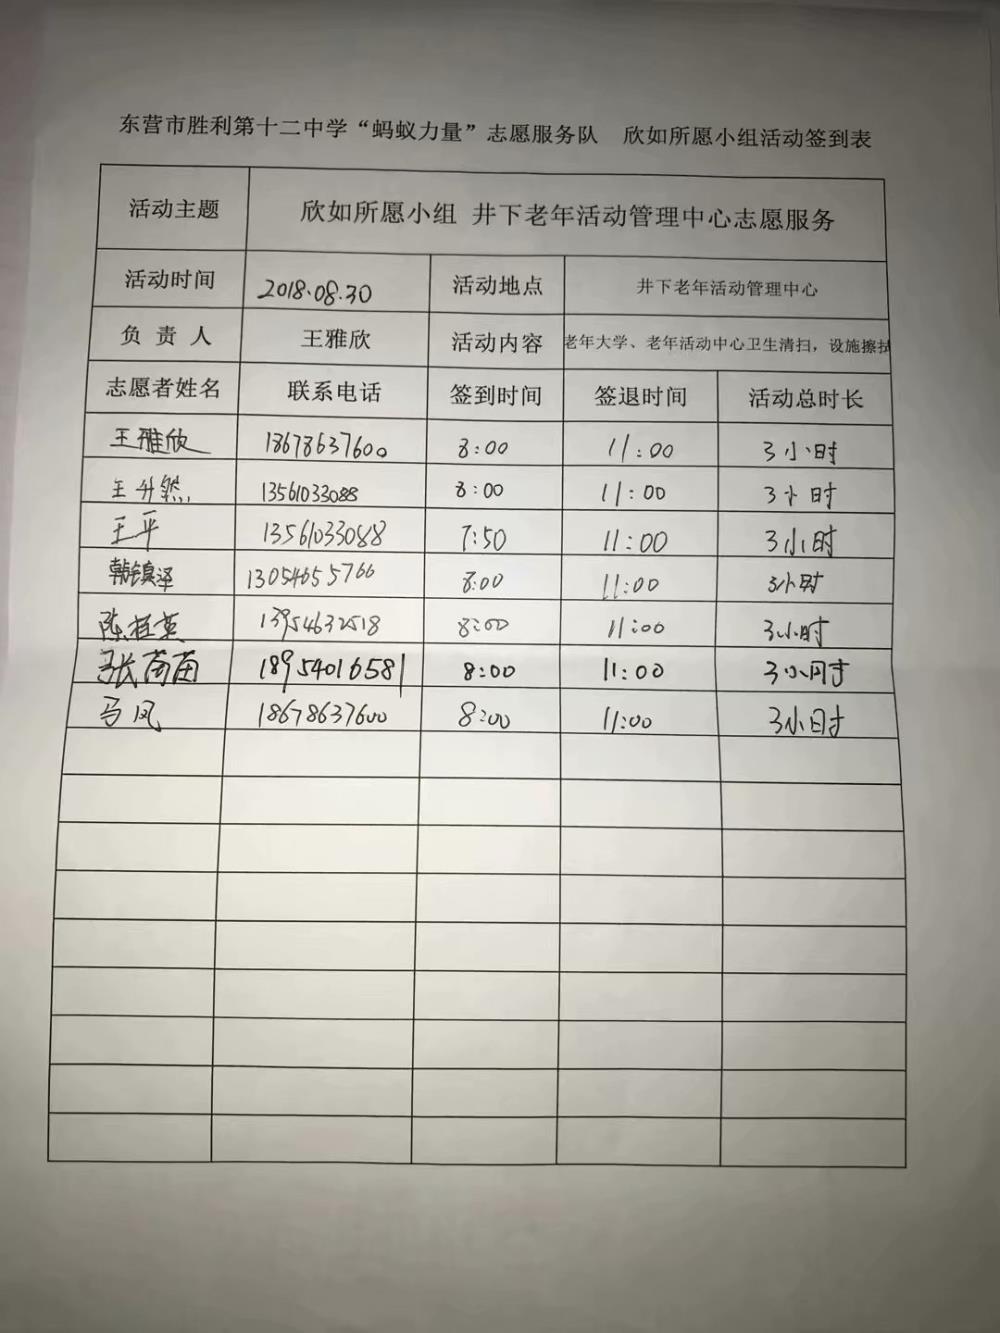 东营市胜利第十二中学“蚂蚁力量”志愿服务队 欣如所愿小组活动签到表
活动主题 欣如所愿小组 井下老年活动管理中心志愿服务
活动时间 2018.08.30 活动地点 井下老年活动管理中心
负责人 王雅欣 活动内容 老年大学、老年活动中心卫生清扫，设施擦拭
志愿者姓名 联系电话 签到时间 签退时间 活动总时长
王雅欣 18678637600 8:00 11:00 3小时
王升然 13561033088 8:00 11:00 3小时
王平 13561033088 7:50 11:00 3小时
韩镇泽 13054655766 8:00 11:00 3小时
陈桂英 13954632518 8:00 11:00 3小时
张苗苗 18954016581 8:00 11:00 3小时
马凤 18678637600 8:00 11:00 3小时